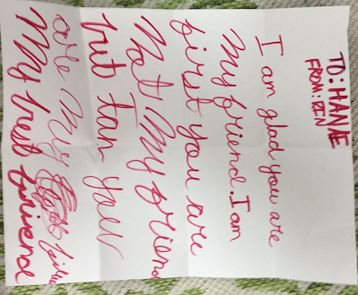 TO: HANAE
FROM: REN
I am glad you are
My friend. I am
first you are
Not My friend
but Ian you
are My
My best friend